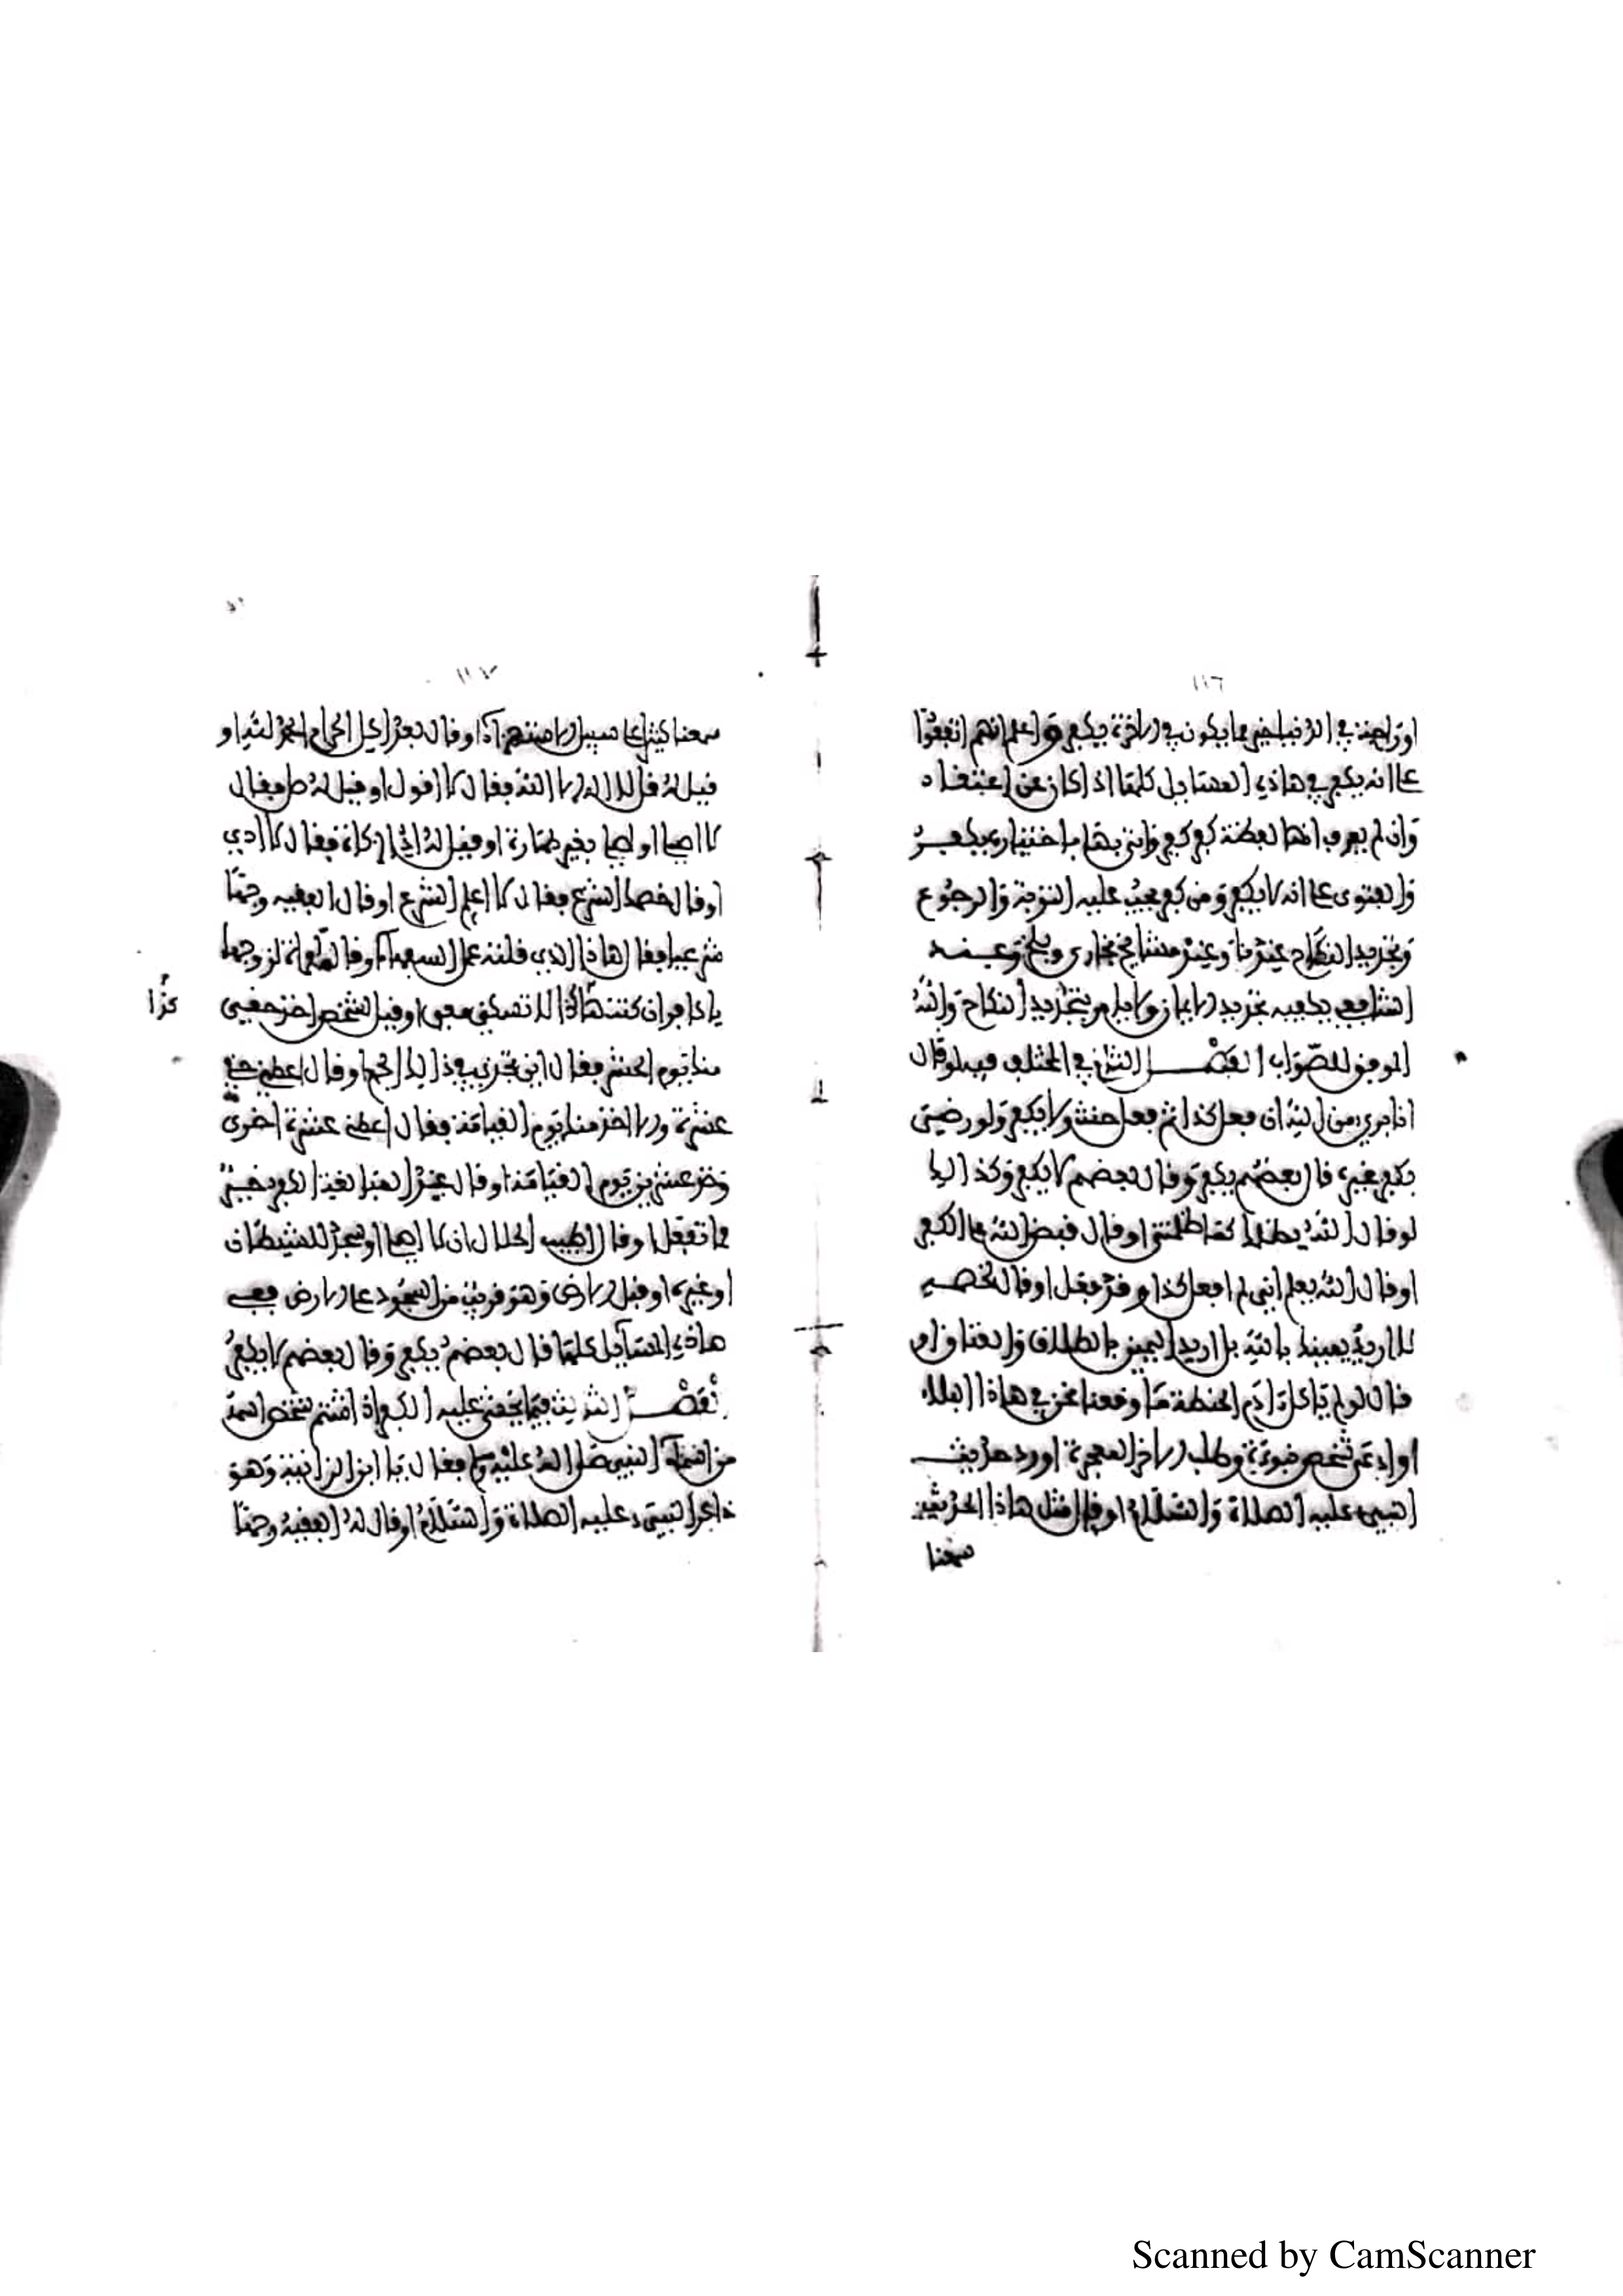 ١١٦
او الجنة في الدنيا خير مما يكون في الاخرة يكفر واعلم انهم اتفقوا
على انه يكفر في هاذه المسايل كلها اذا كان عن اعتقاد
وان لم يعرف انها لفظة كفر واتى بها باختياره يكفر
والفتوى على انه لا يكفر ومن كفر يجب عليه التوبة والرجوع
وتجديد النكاح عندنا وعند مشايخ بخارى وبلخ وعند
الشافعي يكفيه تجديد الايمان ولا يامر بتجديد النكاح والله
الموفق للصواب الفصل الثاني في المختلف فيه لو قال
انا بري من الله ان فعل كذا ثم فعل حنث ولا يكفر ولو رضي
بكفر غيره قال بعضهم يكفر وقال بعضهم لا يكفر وكذالك
لو قال الله يظلمك كما ظلمتني او قال قبض الله على الكفر
او قال الله يعلم اني لم افعل كذا وقد فعل او قال لخصمه
لا اريد يمينك بالله بل اريد اليمين بالطلاق والعتاق او
قال لو لم ياكل ادم الحنطة ما وقعنا نحن في هاذا البلاء
او ادعى شخص نبوءة وطلب الاخر المعجزة او رد حديث
النبي عليه الصلاة والسلام او قال مثل هاذا الحديث
سمعنا
١١٧
سمعنا كثيرا على سبيل الاستهزاء او قال بعد اكل الحرام الحمد لله او
قيل له قل لا اله الا الله فقال لا اقول او قيل له صل فقال
لا اصلي او صلى بغير طهارة او قيل له اد الزكاة فقال لا ادي
او قال خصما لشرع فقال لا اعلم الشرع او قال الفقيه وجها
شرعيا فقال هاذا الذي قلته عمل السفهاء او قال لامراة لزوجها
يا كافر ان كنت هاكذا لا تسكن معي او قيل لشخص اخذ حقي
منك يوم الحشر فقال اين تجدني في ذالك الجمع او قال اعطني حقي
عشرة والا اخذ منك يوم القيامة فقال اعطني عشرة اخرى
وخذ عشرين يوم القيامة او قال عند
ما تفعل او قال اطيب الحلال ان لا اصلي او سجد للشيطان
او غيره او قبل الارض وهو قريب من السجود على الارض ففي
هاذه المسايل كلها قال بعضهم يكفر وقال بعضهم لا يكفر
الفصل الثالث فيما يخشى عليه الكفر اذا شتم شخص اسمه
من اسماء النبي صلى الله عليه وسلم فقال يا ابن الزانية وهو
ذاكر النبي عليه الصلاة والسلام او قال له الفقيه وجها
كذا
Scanned by CamScanner